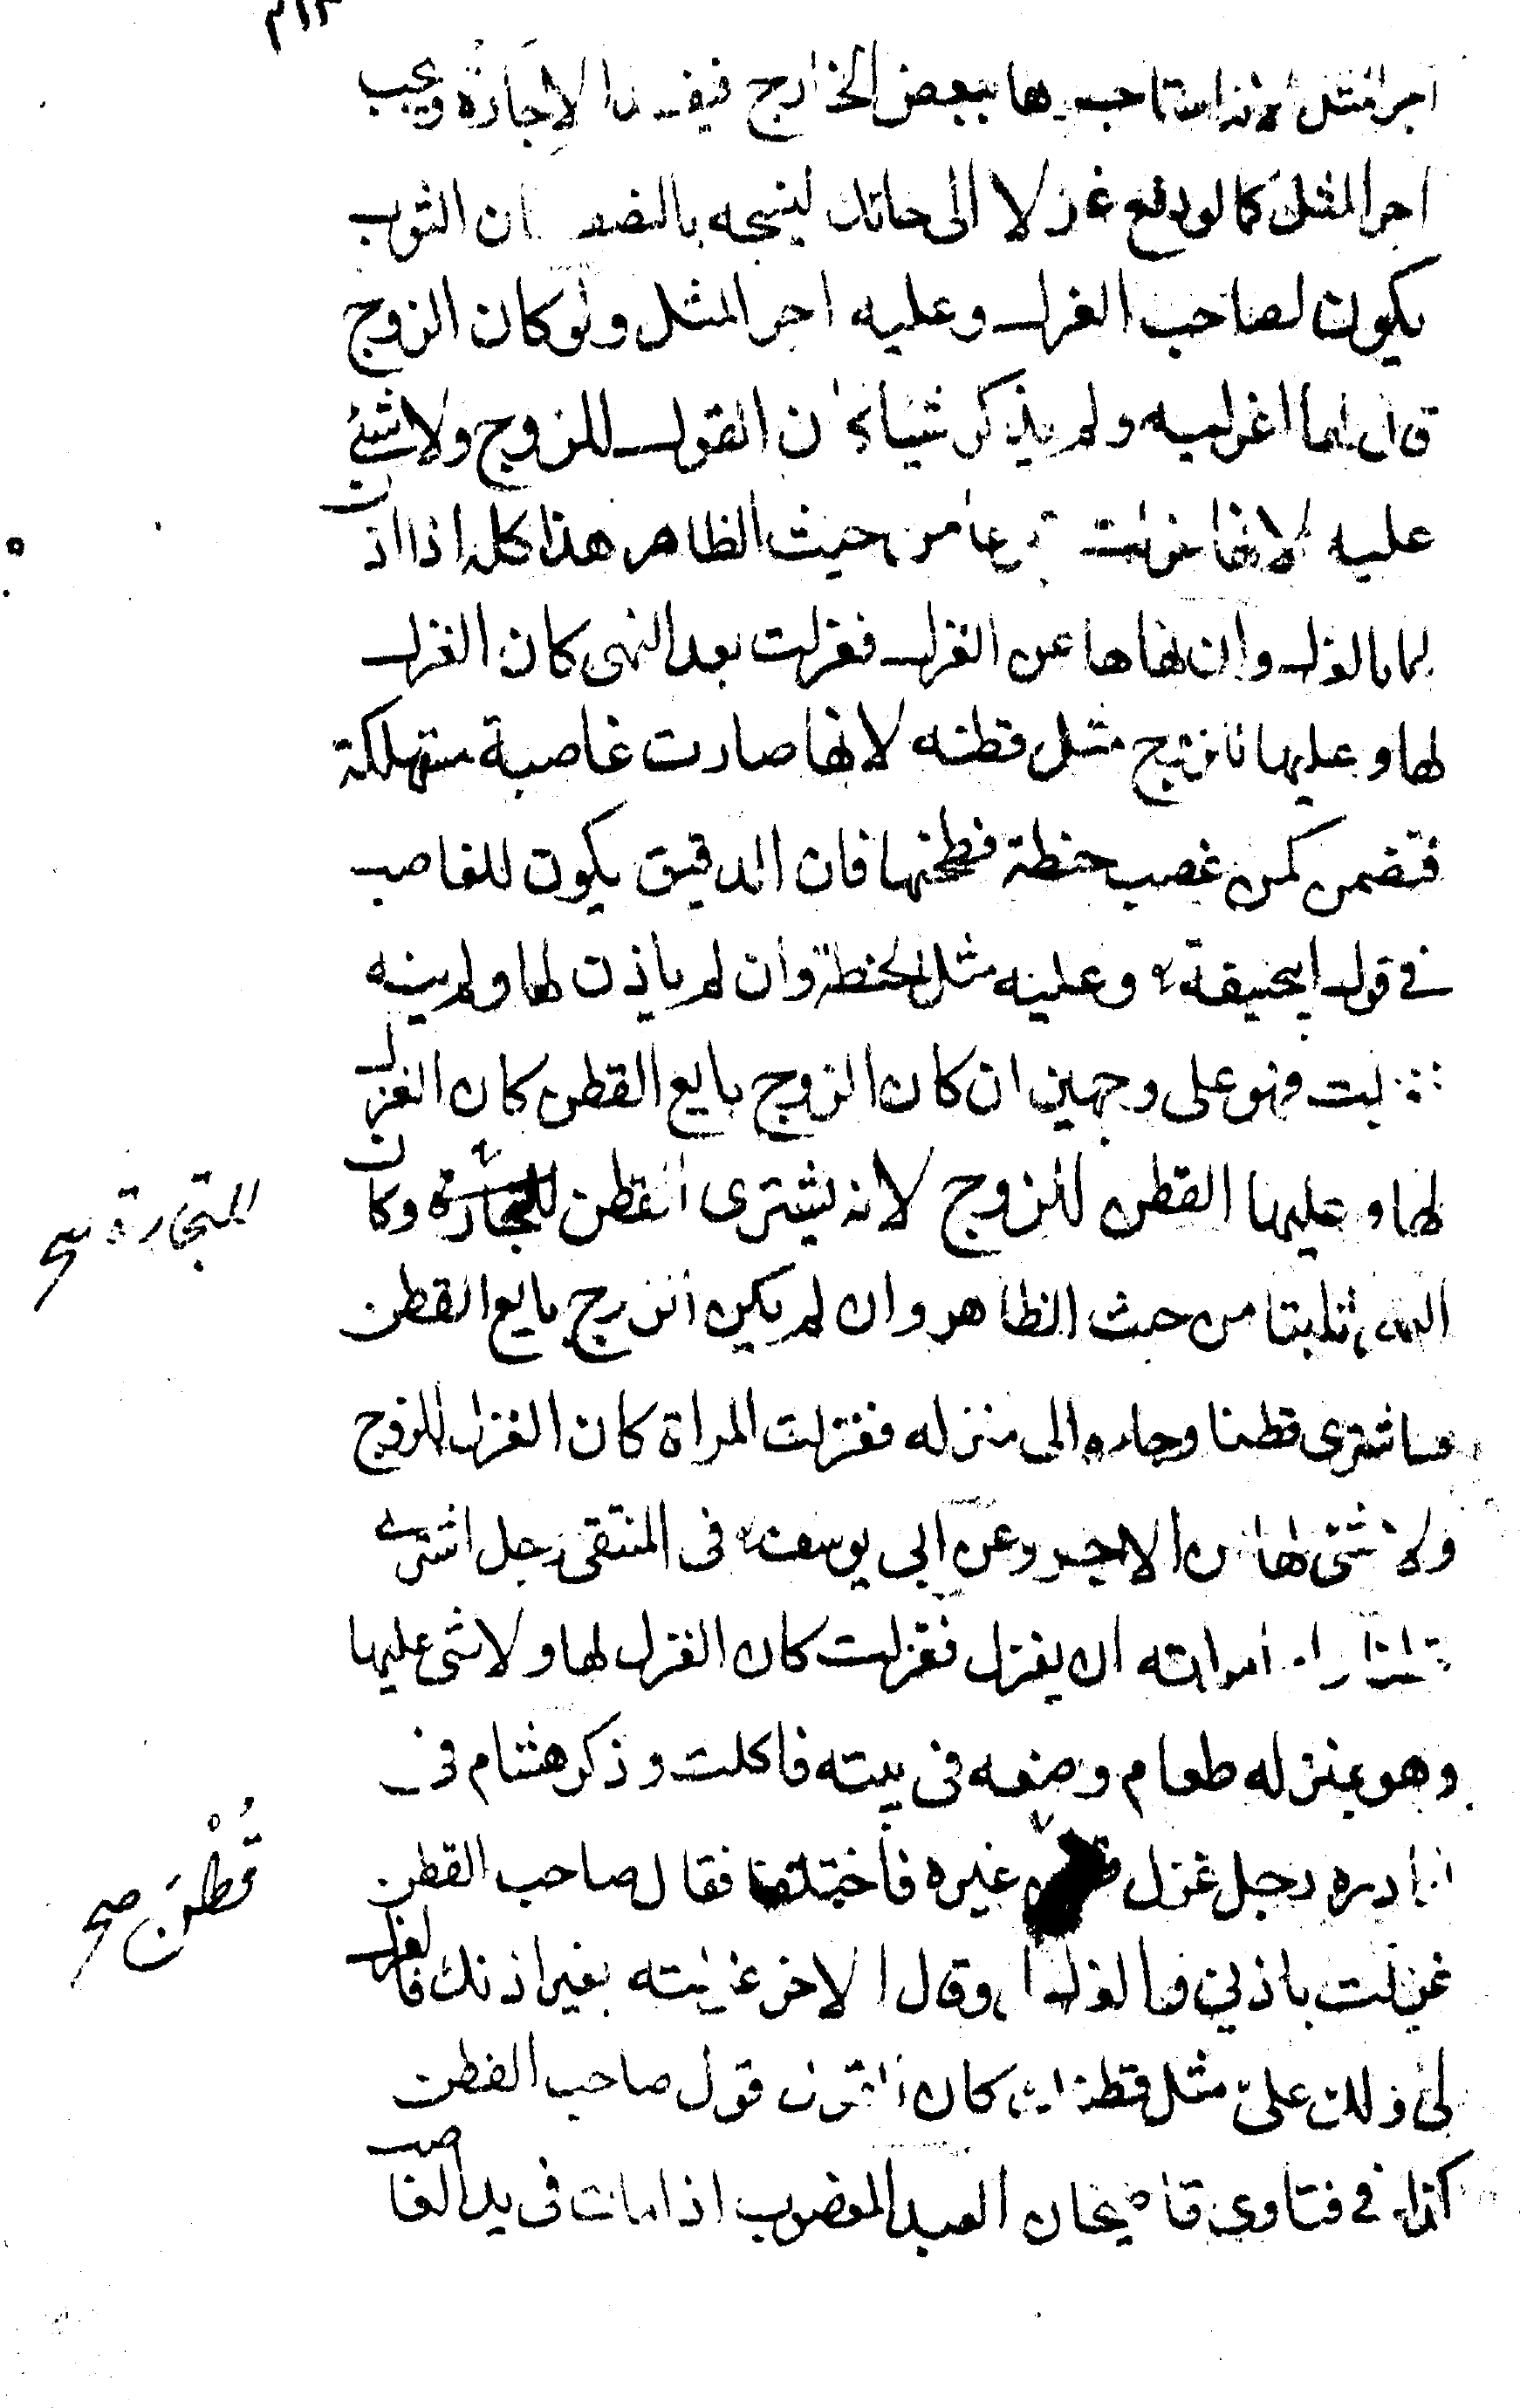 اجر المثل لانه استاجرها ببعض الخارج فيفسد الاجازة ويجب
اجر المثل كما لو دفع غزلا الى حائك لينسجه بالنصف ان الثوب
يكون لصاحب الغزل وعليه اجر المثل ولو كان الزوج
قال لها اغزليه ولم يذكر شياء كان القول للزوج ولا شئ
عليه لانها غزلت تبرعا من حيث الظاهر هذا كله اذا اذن
لها بالغزل وان نهاها عن الغزل فغزلت بعد النهى كان الغزل
لها وعليها للزوج مثل قطنه لانها صارت غاصبة مستهلكة
فتضمن كمن غصب حنطة فطحنها فان الدقيق يكون للغاصب
فى قول ابيحنيفة وعليه مثل الحنطة وان لم ياذن لها ولم ينه
فغزلت فهو على وجهين ان كان الزوج بايع القطن كان الغزل
لها وعليها القطن للزوج لانه يشترى القطن للتجارة وكان
النهى ثابتا من حيث الظاهر وان لم يكن الزوج بايع القطن
فاشترى قطنا وجاء به الى منزله فغزلت المراة كان الغزل للزوج
ولا شئ لها من الاجر وعن ابى يوسف فى المنتقى رجل اشترى
قطنا امراته ان يغزل فغزلت كان الغزل لها ولا شئ عليها
وهو بمنزله طعام وضعه فى بيته فاكلت وذكر هشام فى
نوادره رجل غزل قطن غيره فاختلفا فقال صاحب القطن
غزلت باذنى فالغزل لى وقال الاخر غزلته بغير اذنك فالغزل
لى ولك على مثل قطنك كان القول قول صاحب القطن
كذا فى فتاوى قاضيخان العبد المغصوب اذا مات فى يد الغاصب
للتجارة صح
قُطْنَ صح